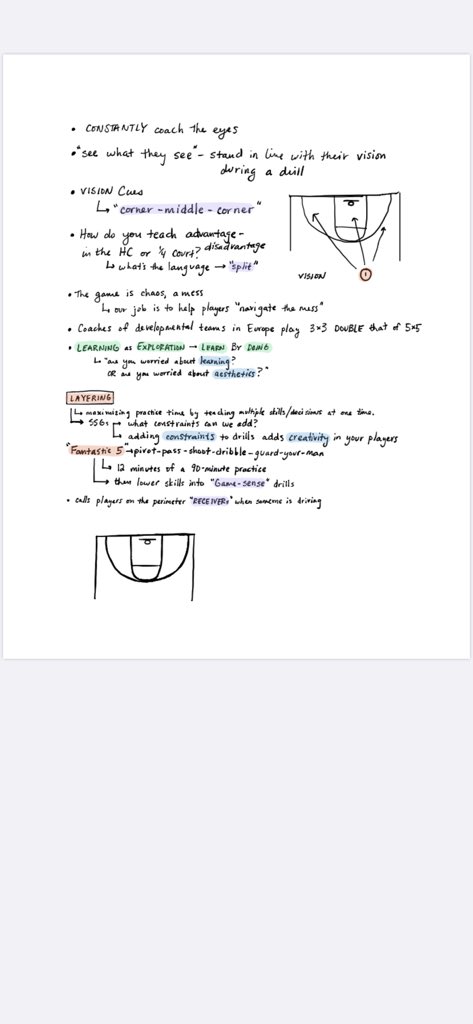 • CONSTANTLY coach the eyes
• "see what they see" - stand in line with their vision
during a drill
• VISION Cues
↳ "corner - middle - corner"
• How do you teach advantage -
disadvantage
in the HC or 1/4 court?
↳ what's the language → "split"
VISION
1
• The game is chaos, a mess
↳ our job is to help players "navigate the mess"
• Coaches of developmental teams in Europe play 3x3 DOUBLE that of 5x5
• LEARNING as EXPLORATION → LEARN By DOING
↳ "are you worried about learning?
OR are you worried about aesthetics?"
LAYERING
↳ maximizing practice time by teaching multiple skills/decisions at one time.
→ SSGs → what constraints can we add?
↳ adding constraints to drills adds creativity in your players
"Fantastic 5" → pivot - pass - shoot - dribble - guard-your-man
↳ 12 minutes of a 90-minute practice
↳ then lower skills into "Game-sense" drills
• calls players on the perimeter "RECEIVERs" when someone is driving